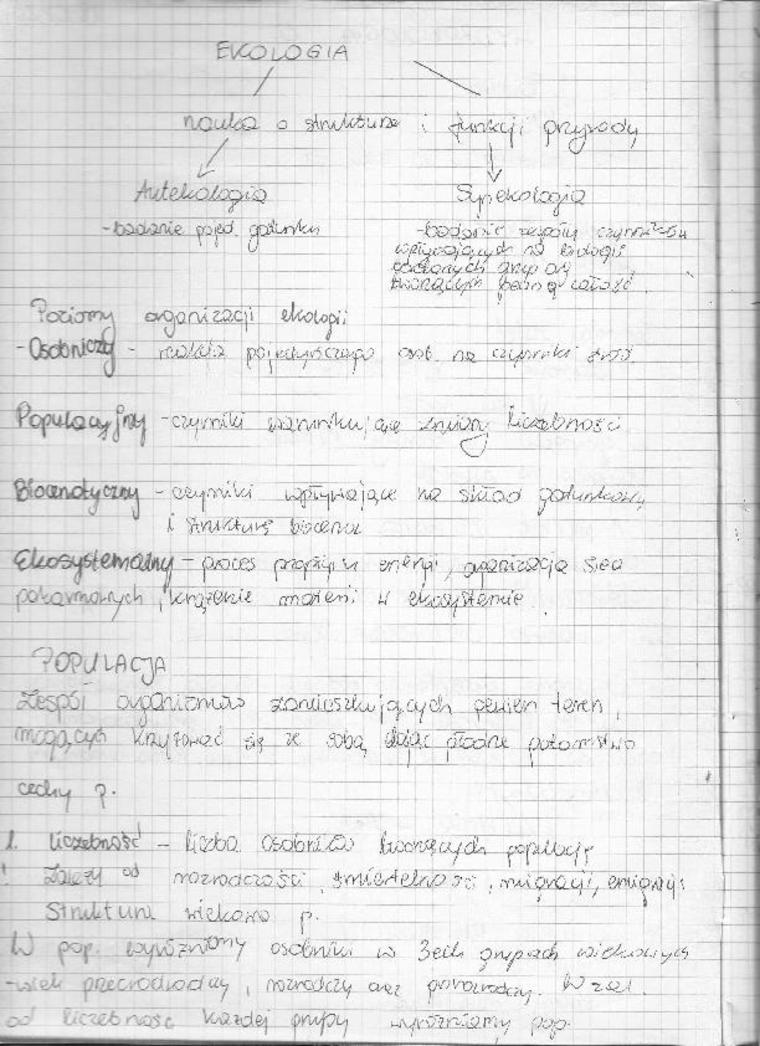 EKOLOGIA
nauka o strukturze i funkcji przyrody
Autekologia
Synekologia
-badanie pojed. gatunku
-badanie zespołu czynników
wpływających na biologię
grup org
tworzących pewną całość.
Poziomy organizacji ekologii
-Osobniczy - reakcja pojedynczego osob. na czynniki środ.
Populacyjny - czynniki warunkujące zmiany liczebności
Biocenotyczny - czynniki wpływające na skład gatunkowy
i strukturę biocenoz
Ekosystemalny - proces przepływu energi, organizacja sieci
pokarmowych, krążenie materii w ekosystemie.
POPULACJA
Zespół organizmów zamieszkujących pewien teren,
mogących krzyżować się ze sobą dając płodne potomstwo
cechy p.
1. liczebność - liczba osobników tworzących populację
! Zależy od rozrodczości, śmiertelność, migracji, emigracji
Struktura wiekowa p.
W pop. wyróżniamy osobniki w 3ech grupach wiekowych
-wiek przedrodczy, rozrodczy oraz porozrodczy. W zal.
od liczebność każdej grupy wyróżniamy pop.